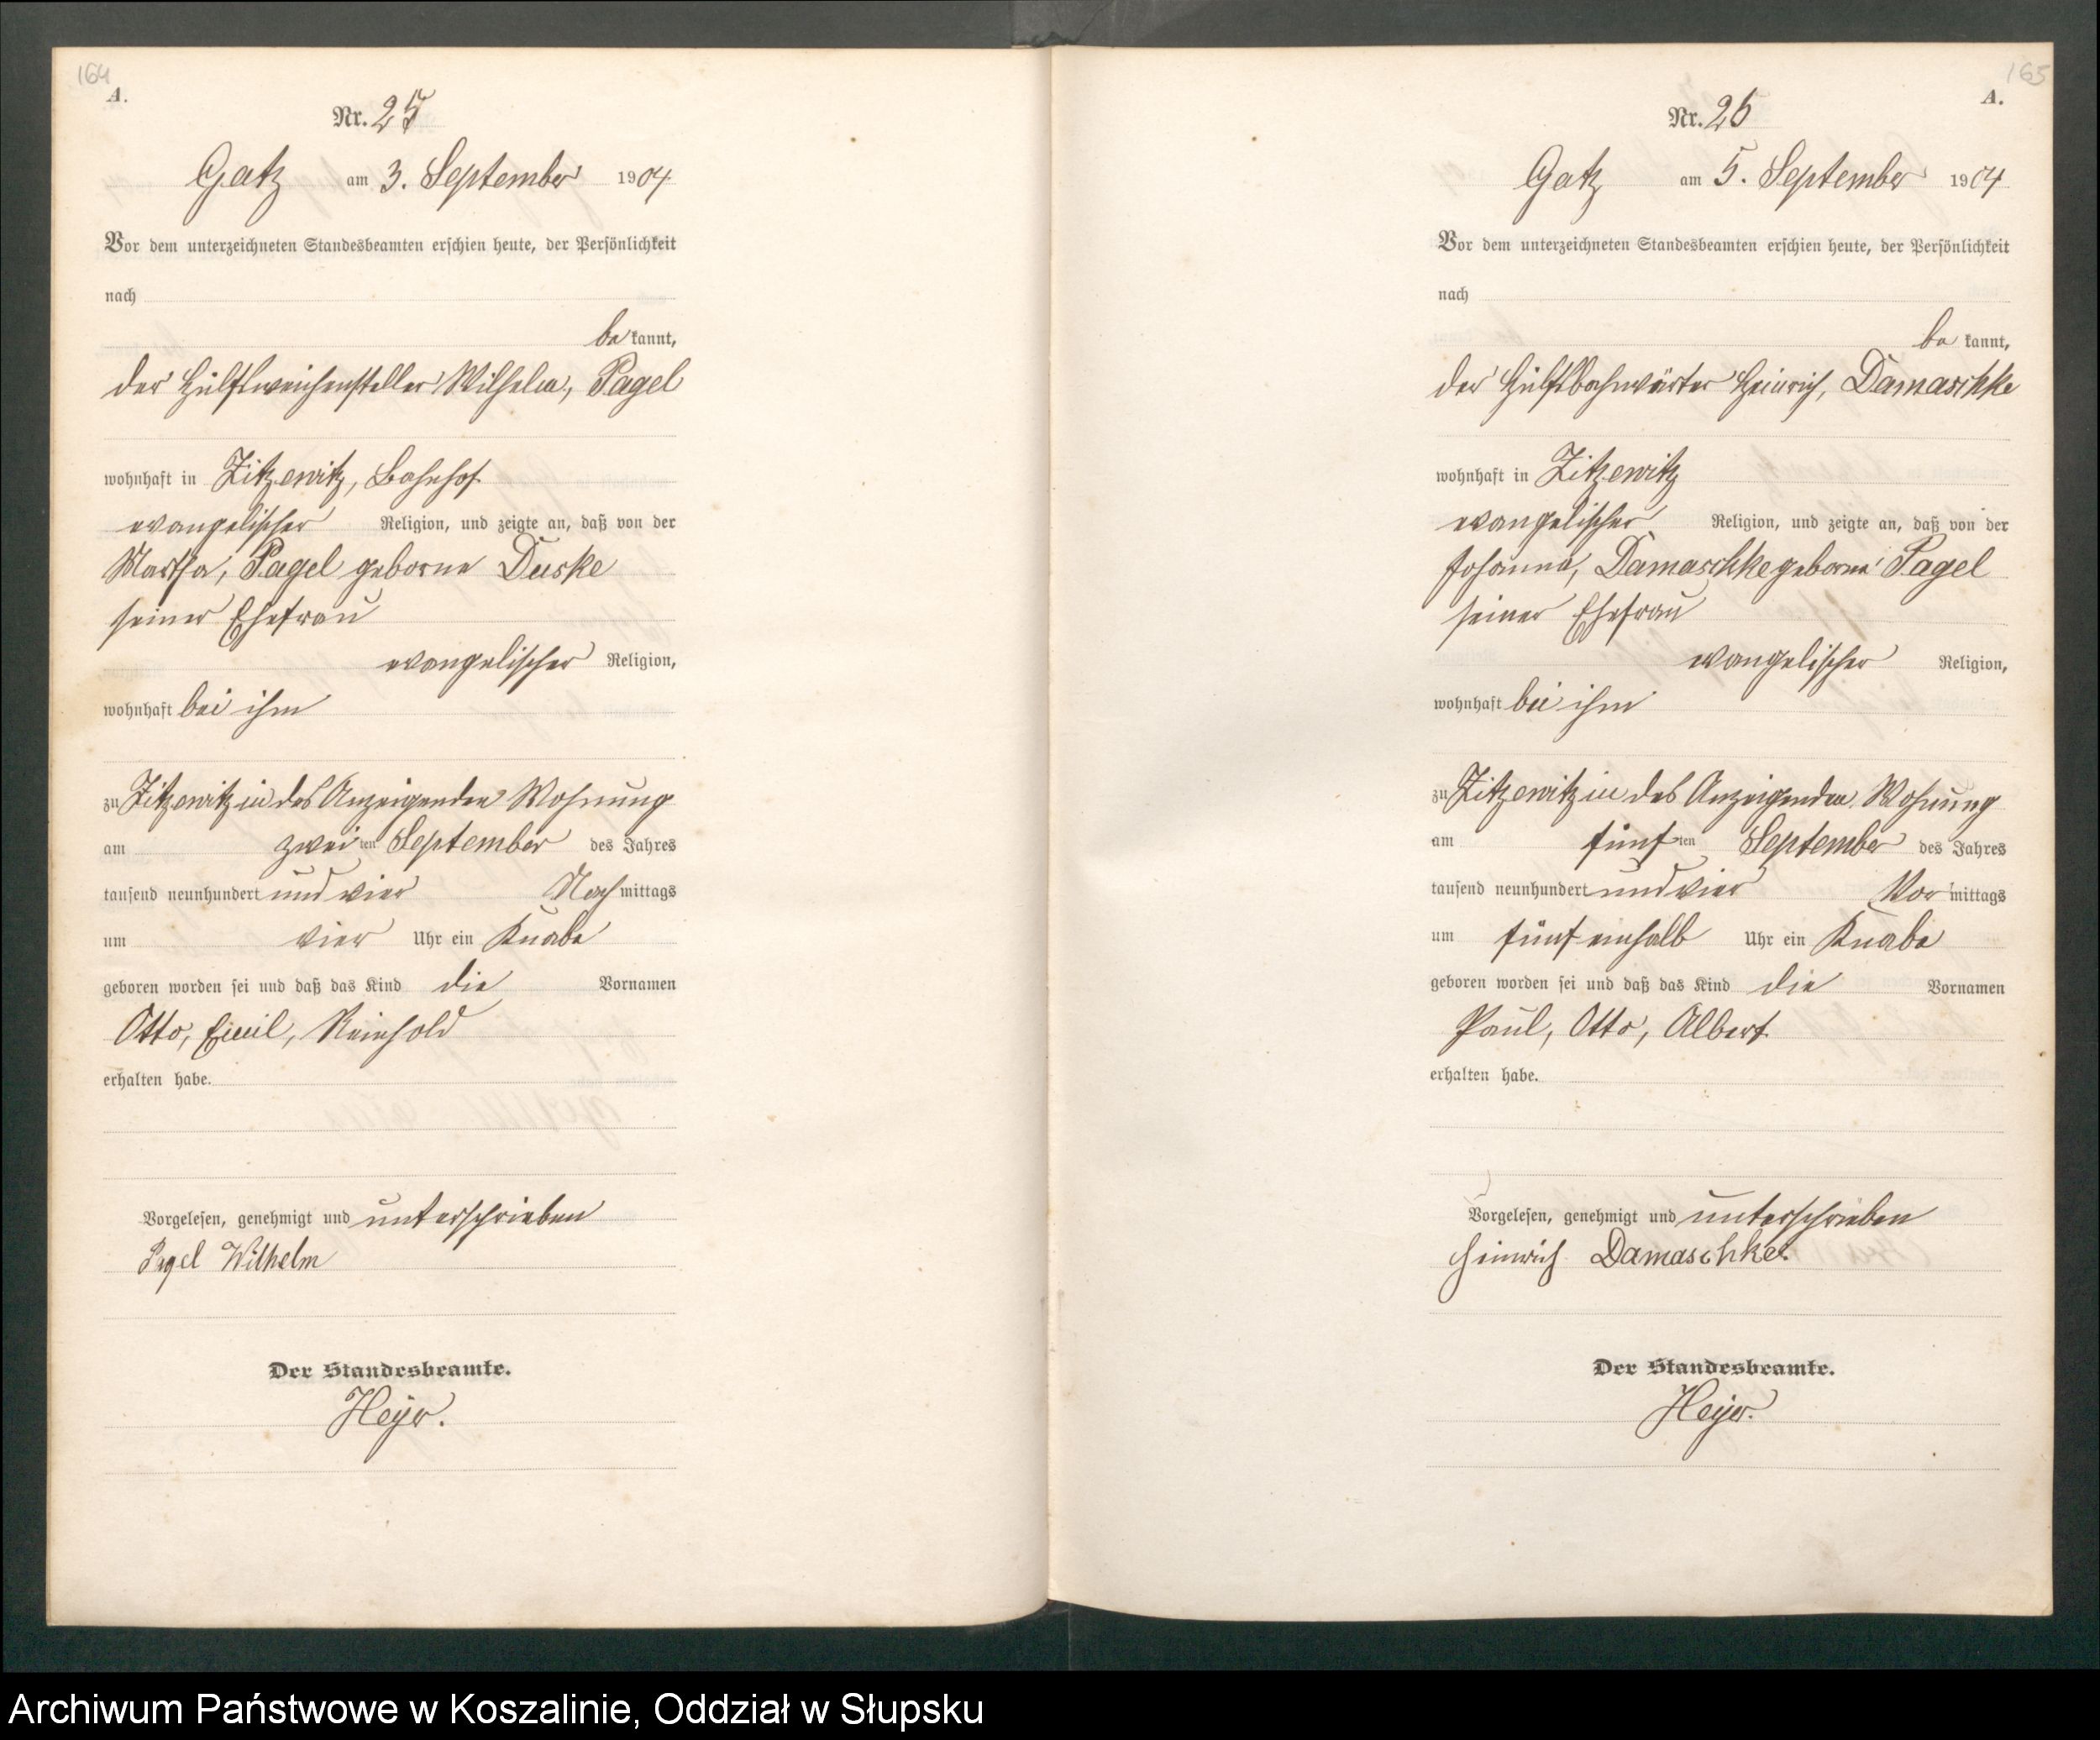 164
A.
Nr. 25
Gatz am 3. September 1904
Vor dem unterzeichneten Standesbeamten erschien heute, der Persönlichkeit
nach
be kannt,
der Hülfsweichensteller Wilhelm, Pagel
wohnhaft in Zitzewitz, Bahnhof
evangelischer Religion, und zeigte an, daß von der
Martha, Pagel geborne Duske
seiner Ehefrau
evangelischer Religion,
wohnhaft bei ihm
zu Zitzewitz in des Anzeigenden Wohnung
am zwei ten September des Jahres
tausend neunhundert und vier Nach mittags
um vier Uhr ein Knabe
geboren worden sei und daß das Kind die Vornamen
Otto, Emil, Reinhold
erhalten habe.
Vorgelesen, genehmigt und unterschrieben
Pagel Wilhelm
Der Standesbeamte.
Heyer.
165
A.
Nr. 26
Gatz am 5. September 1904
Vor dem unterzeichneten Standesbeamten erschien heute, der Persönlichkeit
nach
be kannt,
der Hülfsbahnwärter Heinrich, Damaschke
wohnhaft in Zitzewitz
evangelischer Religion, und zeigte an, daß von der
Johanna, Damaschke geborne Pagel
seiner Ehefrau
evangelischer Religion,
wohnhaft bei ihm
zu Zitzewitz in des Anzeigenden Wohnung
am fünf ten September des Jahres
tausend neunhundert und vier Vor mittags
um fünf einhalb Uhr ein Knabe
geboren worden sei und daß das Kind die Vornamen
Paul, Otto, Albert
erhalten habe.
Vorgelesen, genehmigt und unterschrieben
Heinrich Damaschke.
Der Standesbeamte.
Heyer.
Archiwum Państwowe w Koszalinie, Oddział w Słupsku